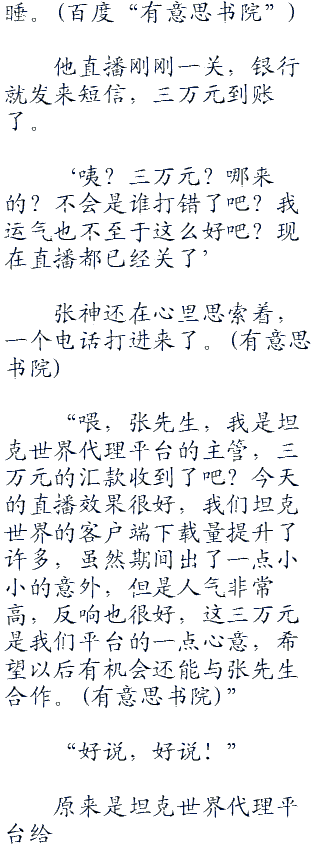 睡。(百度“有意思书院”)
他直播刚刚一关，银行
就发来短信，三万元到账
了。
‘咦？三万元？哪来
的？不会是谁打错了吧？我
运气也不至于这么好吧？现
在直播都已经关了’
张神还在心里思索着，
一个电话打进来了。(有意思
书院)
“喂，张先生，我是坦
克世界代理平台的主管，三
万元的汇款收到了吧？今天
的直播效果很好，我们坦克
世界的客户端下载量提升了
许多，虽然期间出了一点小
小的意外，但是人气非常
高，反响也很好，这三万元
是我们平台的一点心意，希
望以后有机会还能与张先生
合作。(有意思书院)”
“好说，好说！”
原来是坦克世界代理平
台给